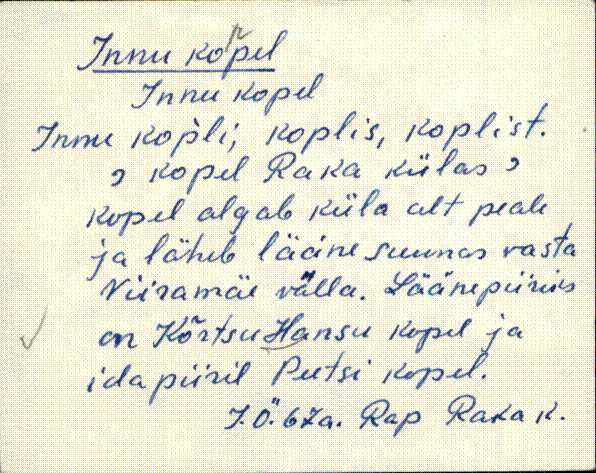 Innu kopel
Innu kopel
Innu kop̀li, koplis, koplist.
, kopel Raka külas,
kopel algab küla alt peale
ja läheb lääne suunas vasta
Viiramäe välla. Läänepiiriks
on Kõrtsu Hansu kopel ja
idapiiril Peetsi kopel.
I.Ö. 67a. Rap Raka k.